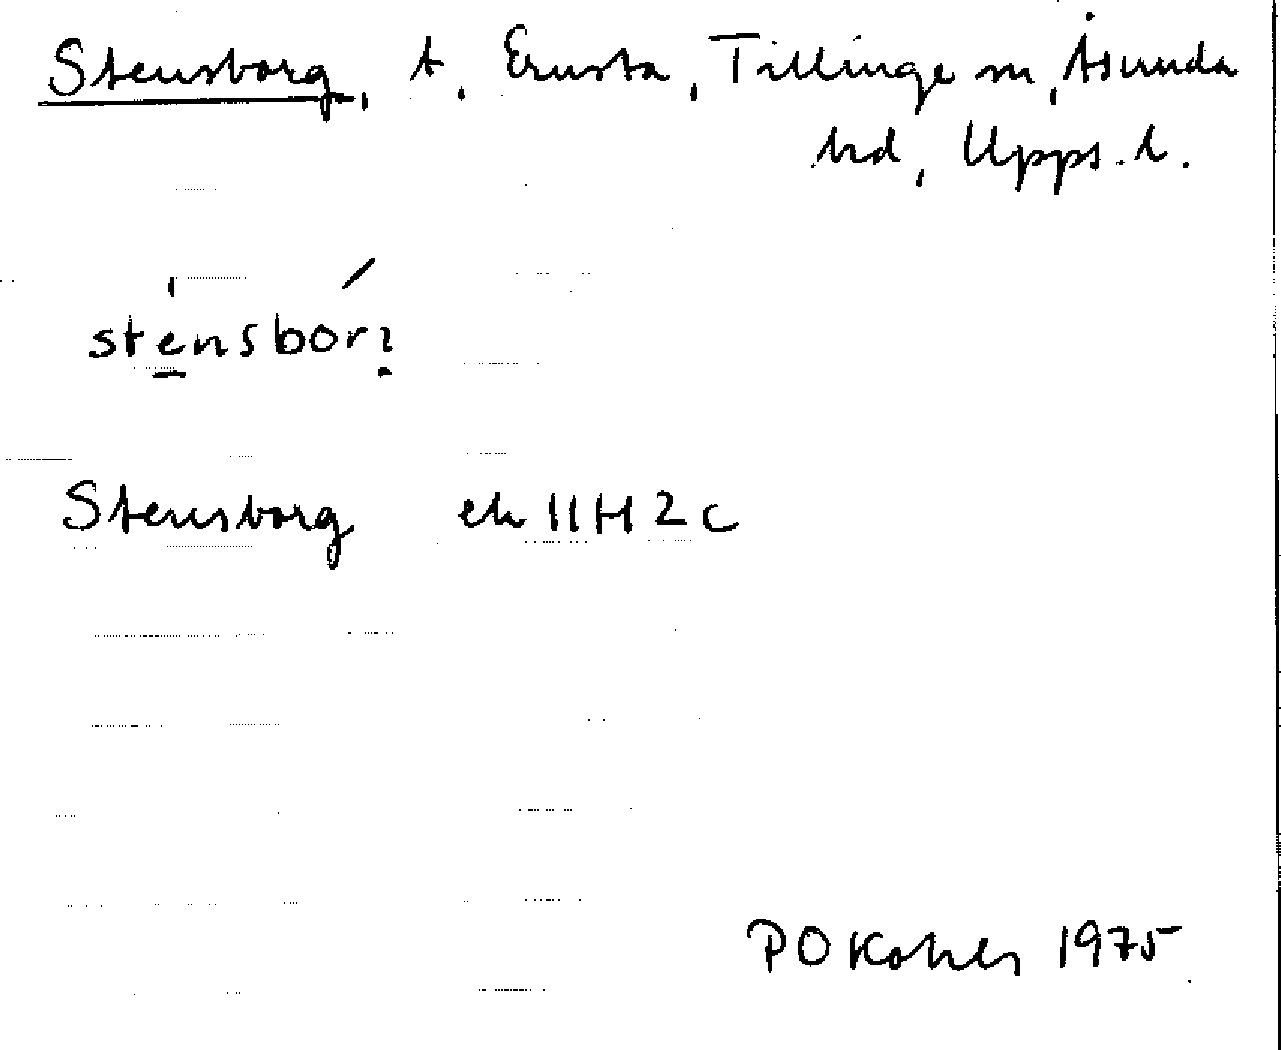 Stensborg, t, Ernsta, Tillinge sn, Åsunda
hd, Upps. l.
stensbor
Stensborg ek 11H2c
P O Kohler 1975